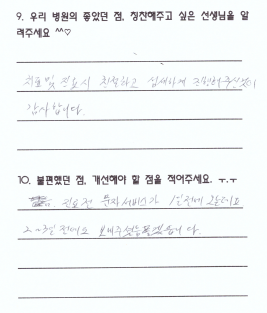 9. 우리 병원의 좋았던 점, 칭찬해주고 싶은 선생님을 알
려주세요 ^^♡
치료 및 진료시 친절하고 섬세하게
감사합니다.
10. 불편했던 점, 개선해야 할 점을 적어주세요. ㅜ.ㅜ
진료전 문자서비스가 1일전에
2~3일 전에도 보내주셨음 좋겠습니다.